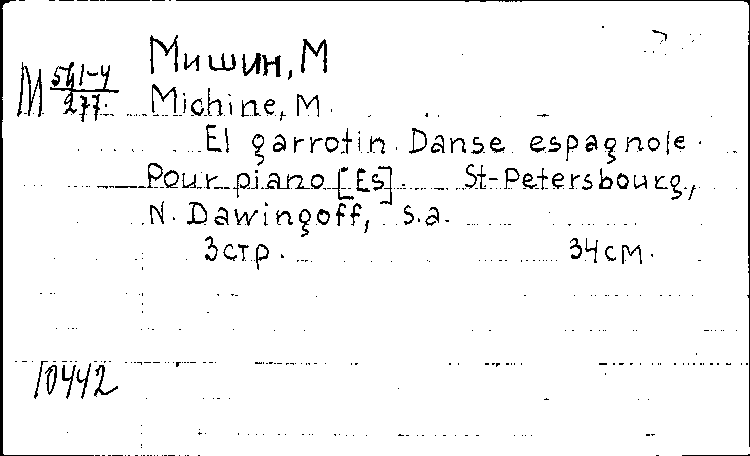 Мишин, М
М 541-4
277.
Michine, M.
El garrotin. Danse espagnole.
Pour piano [Es]. St-Petersbourg,
N. Dawingoff, s.a.
3 стр. 34 см.
10442